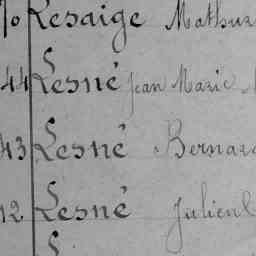 70 Lesaige Mathur
44 Lesné Jean Marie
43 Lesné Bernard
12 Lesné Julien